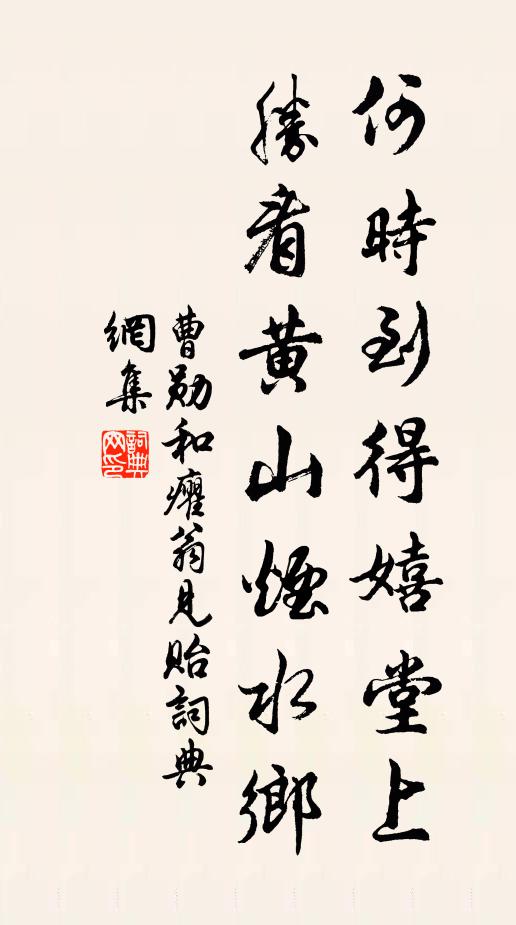 何時到得嬉堂上
勝看黃山煙水鄉
曹勛和癯翁見貽詞典
網集
詞典
网印